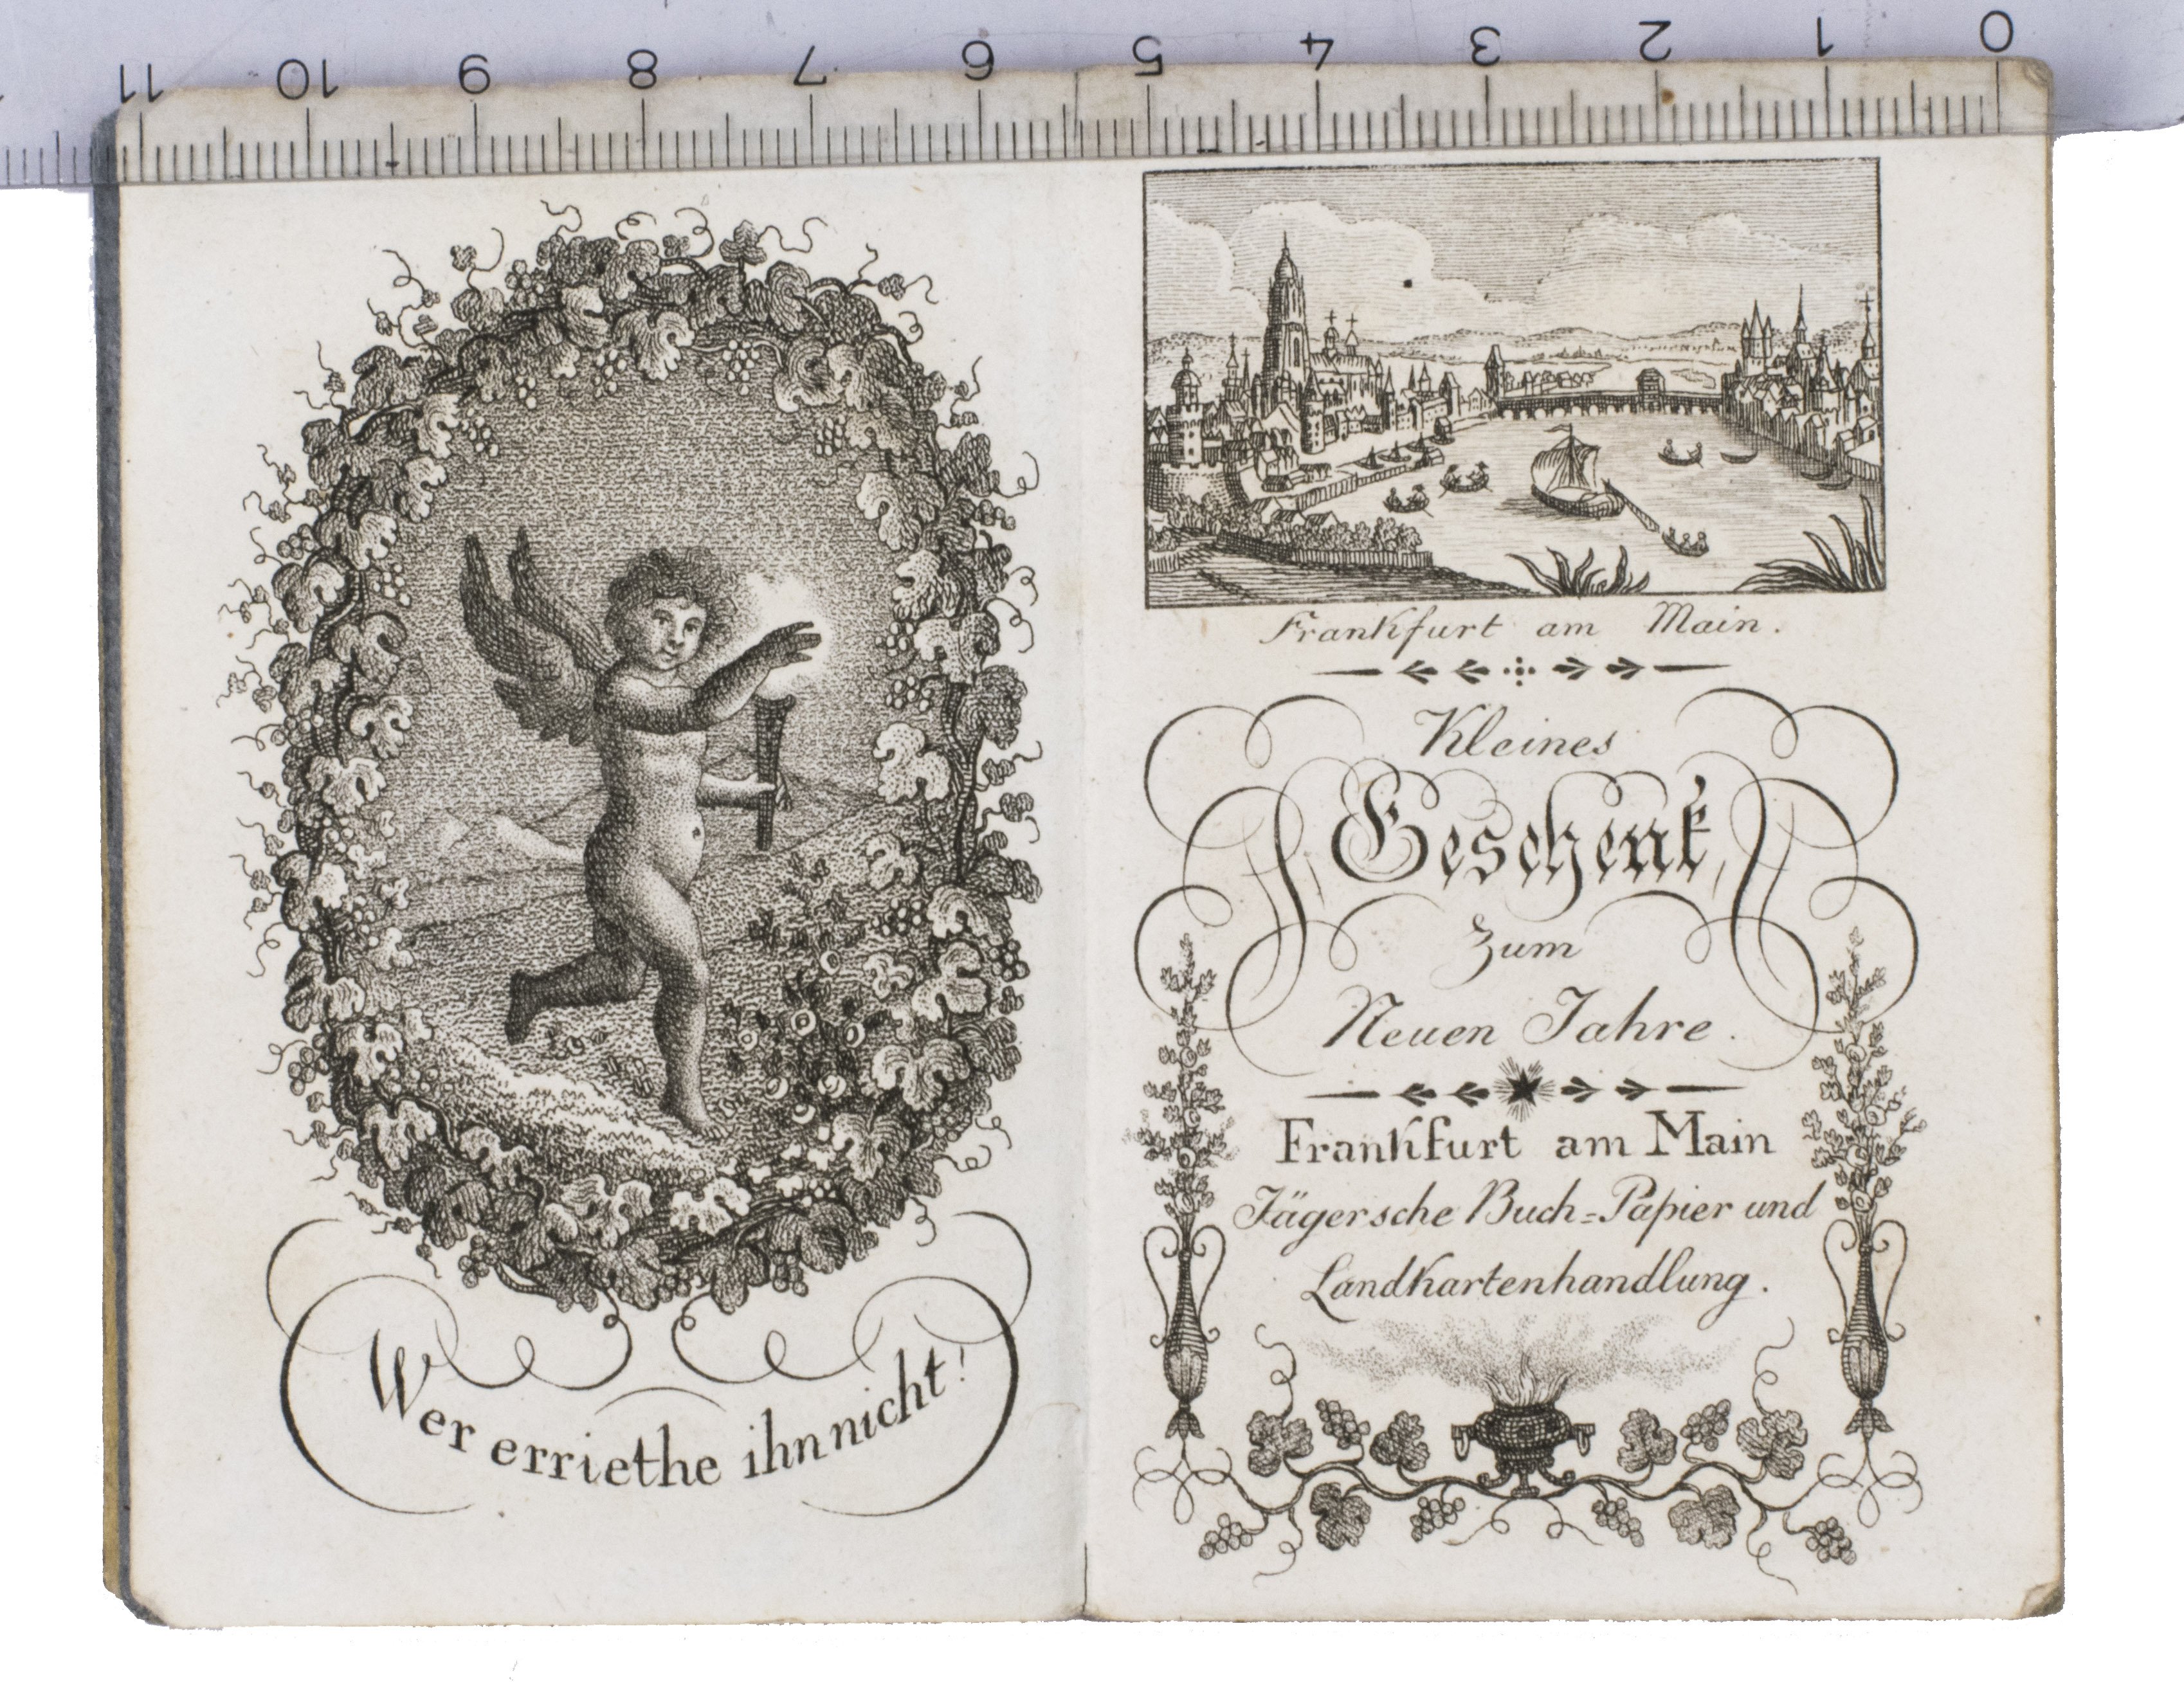 11 10 9 8 7 6 5 4 3 2 1 0
Wer erriethe ihn nicht!
Frankfurt am Main.
Kleines
Geschenk
zum
Neuen Jahre.
Frankfurt am Main
Jägersche Buch=Papier und
Landkartenhandlung.